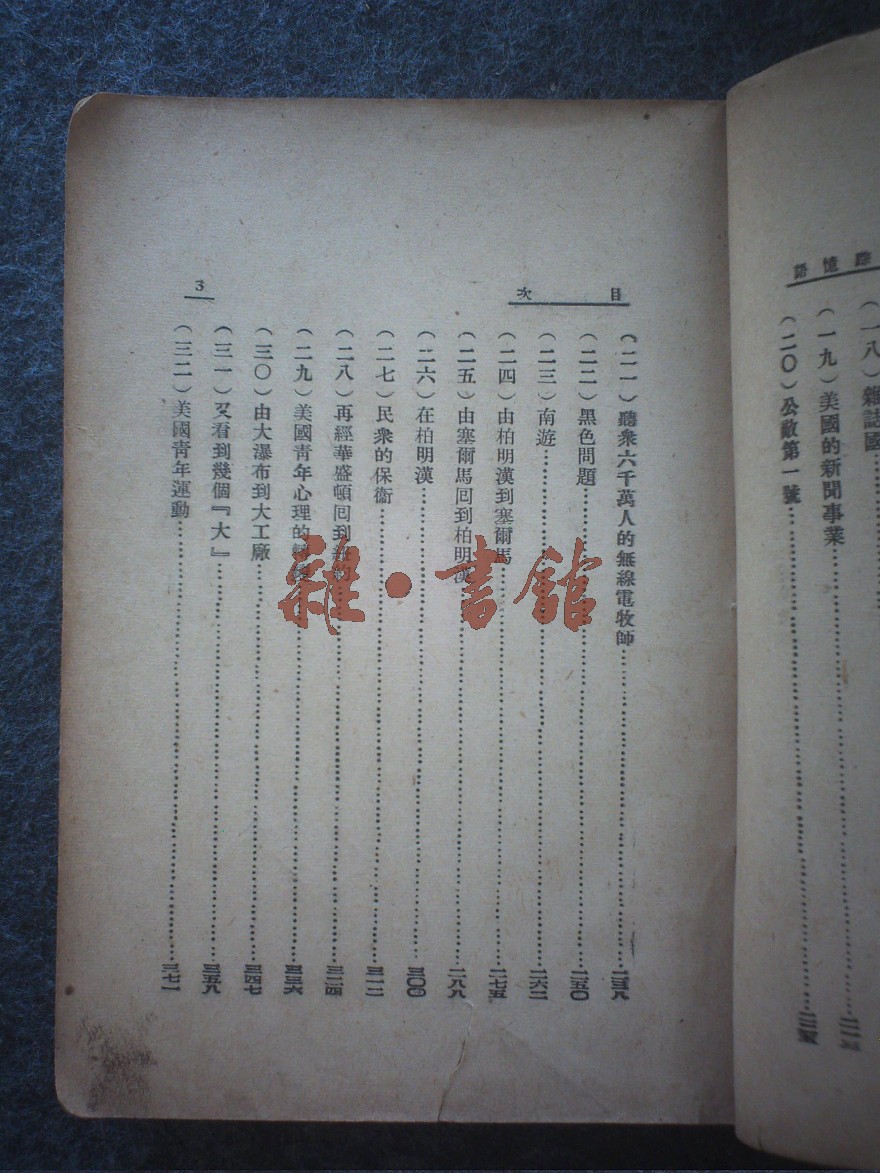 憶語
（一八）雜誌國
（一九）美國的新聞事業
（二〇）公敵第一號
目次
（二一）聽衆六千萬人的無線電牧師……二三八
（二二）黑色問題……二五〇
（二三）南遊……二六二
（二四）由柏明漢到塞爾馬……二七五
（二五）由塞爾馬回到柏明漢……二八八
（二六）在柏明漢……三〇〇
（二七）民衆的保衞……三一二
（二八）再經華盛頓回到紐約……三二四
（二九）美國靑年心理的轉變……三三六
（三〇）由大瀑布到大工廠……三四七
（三一）又看到幾個『大』……三五八
（三二）美國靑年運動……三七一
3
雜·書館